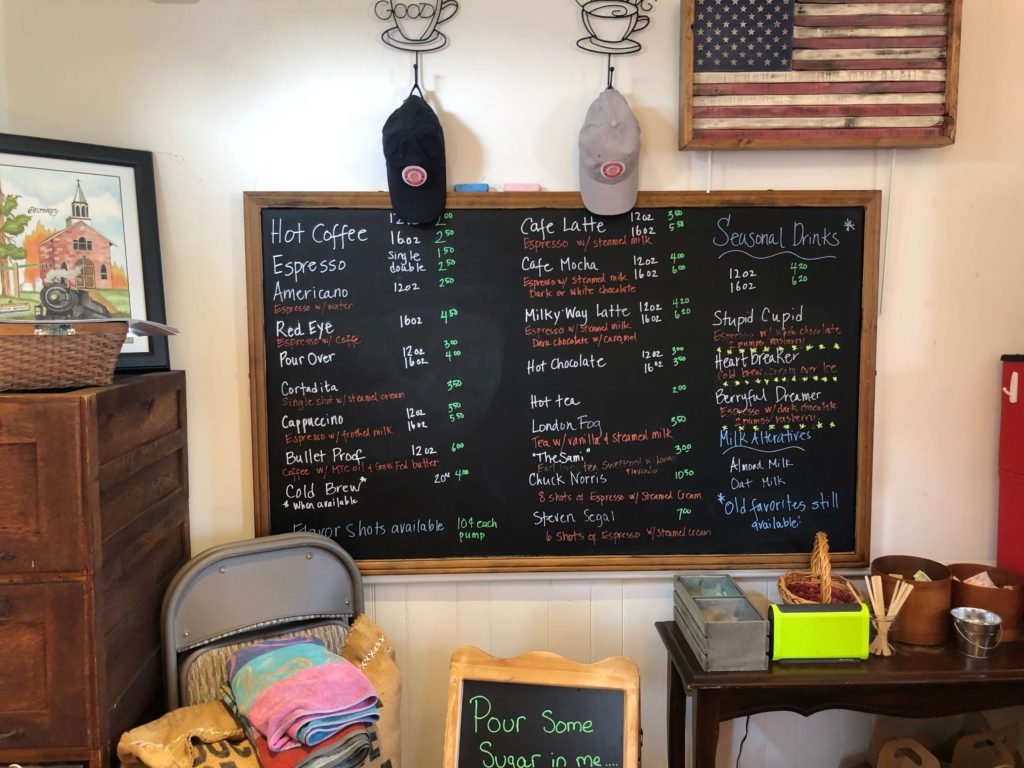 Good
Hot Coffee 12oz 2.00
16oz 2.50
Espresso single 1.50
double 2.50
Americano 12oz 2.50
Espresso w/ water
Red Eye 16oz 4.50
Espresso w/ Coffe
Pour Over 12oz 3.00
16oz 4.00
Cortadita 3.50
Single shot w/ steamed cream
Cappuccino 12oz 3.50
16oz 5.50
Espresso w/ frothed milk
Bullet Proof 12oz 6.00
Coffee w/ MTC oil & Grass Fed butter
Cold Brew* 20oz 4.00
* When available
Flavor Shots available 10¢ each
pump
Cafe Latte 12oz 3.50
16oz 5.50
Espresso w/ steamed milk
Cafe Mocha 12oz 4.00
16oz 6.00
Espresso w/ steamed milk
Dark or White chocolate
Milky Way Latte 12oz 4.20
16oz 6.20
Espresso w/ Steamed milk
Dark chocolate w/ caramel
Hot Chocolate 12oz 3.00
16oz 3.50
Hot tea 2.00
London Fog 3.50
Tea w/ vanilla & steamed milk
"The Sami" 3.00
tea
Chuck Norris 10.50
8 shots of Espresso w/ Steamed Cream
Steven Segal 7.00
6 Shots of Espresso w/ Steamed cream
Seasonal Drinks *
12oz 4.20
16oz 6.20
Stupid Cupid
Espresso w/ white chocolate
2 pumps rasberry
Heart Breaker
Cold brew, cream over Ice
Berryful Dreamer
Espresso w/ dark chocolate
2 pumps rasberry
Milk Alteratives
Almond Milk
Oat Milk
*Old favorites still
available*
Pour Some
Sugar in me....